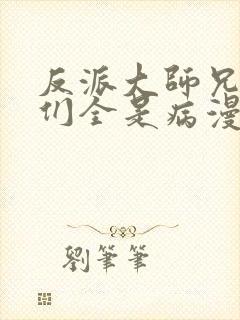 反派大師兄
们全是病漫
劉筆筆